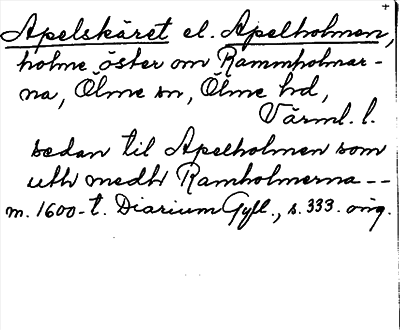 Apelskäret el. Apelholmen,
holme öster om Rammholmar-
na, Ölme sn, Ölme hd,
Värml. l.
sedan til Apelholmen som
uthi medh Ramholmerna --
m. 1600-t. Diarium Gyll., s. 333. orig.